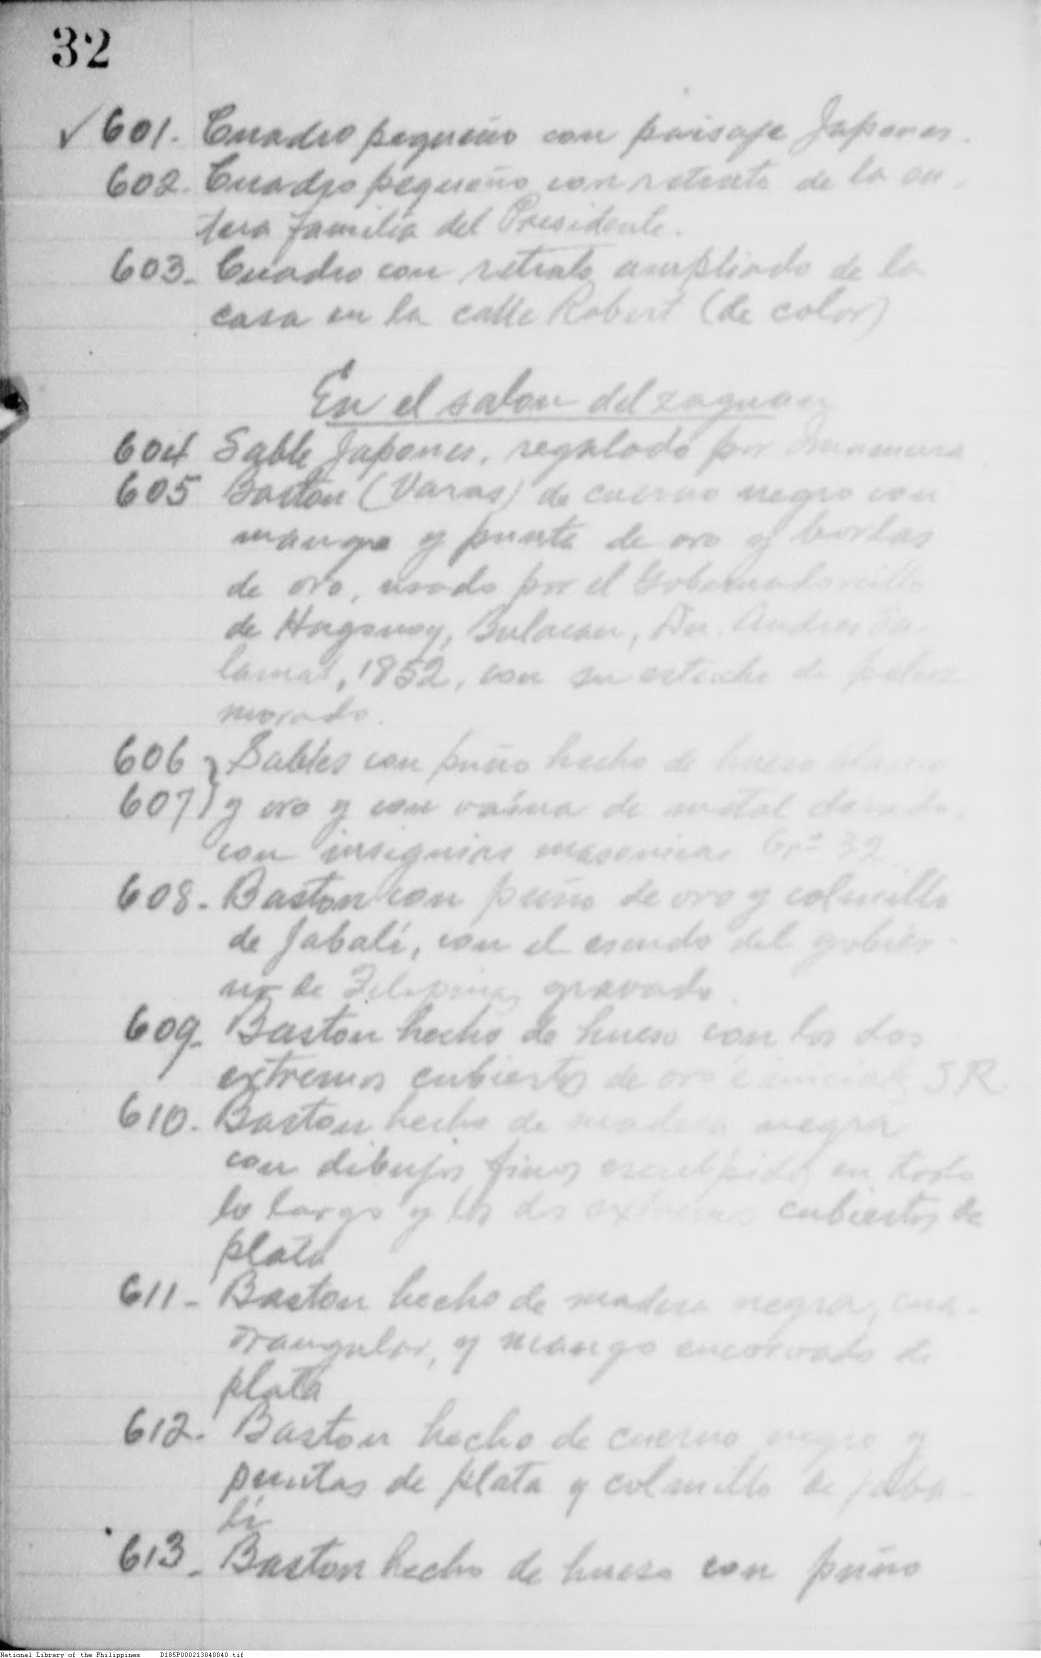 32
✓ 601. Cuadro pequeño con paisaje Japones.
602. Cuadro pequeño con retrato de la en-
tera familia del Presidente.
603. Cuadro con retrato ampliado de la
casa en la calle Robert (de color)
En el salon del zaguan
604 Sable Japones, regalado por Imamura
605 Baston (Varas) de cuerno negro con
mango y punta de oro y borlas
de oro, usado por el Gobernadorcillo
de Hagonoy, Bulacan, Dn. Andres
1852, con su estuche de
morado.
606 } Sables con puño hecho de hueso blanco
607 } y oro y con vaina de metal dorado,
con insignias masonicas Grº 32
608. Baston con puño de oro y colmillo
de Jabalí, con el escudo del gobier-
no de Filipinas gravado.
609. Baston hecho de hueso con los dos
extremos cubiertos de oro é iniciales S R
610. Baston hecho de madera negra
con dibujos finos esculpidos en todo
lo largo y los dos extremos cubiertos de
plata
611 - Baston hecho de madera negra, cua-
drangular, y mango encorvado de
plata
612. Baston hecho de cuerno negro y
puntas de plata y colmillo de jaba-
lí
613 - Baston hecho de hueso con puño
National Library of the Philippines D185P000213040040.tif